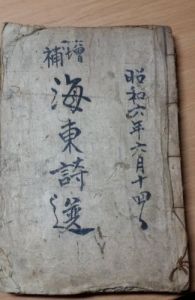 昭和六年六月十四日
增補
海東詩選